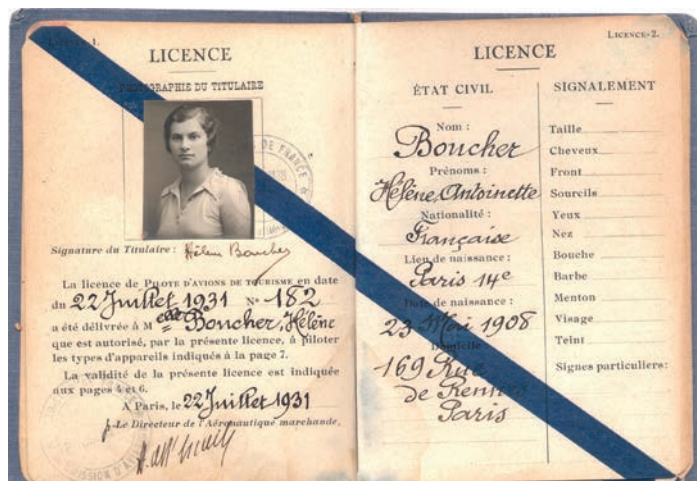 Licence-1.
LICENCE
PHOTOGRAPHIE DU TITULAIRE
DE FRANCE
Signature du Titulaire : Hélène Boucher
La licence de PILOTE D'AVIONS DE TOURISME en date
du 22 Juillet 1931 N° 182
a été délivrée à Melle Boucher, Hélène
que est autorisé, par la présente licence, à piloter
les types d'appareils indiqués à la page 7.
La validité de la présente licence est indiquée
aux pages 4 et 6.
A Paris, le 22 Juillet 1931
p. Le Directeur de l'Aéronautique marchande,
LICENCE-2.
LICENCE
ÉTAT CIVIL
Nom :
Boucher
Prénoms :
Hélène, Antoinette
Nationalité :
Française
Lieu de naissance :
Paris 14e
Date de naissance :
23 Mai 1908
Domicile
169 Rue
de Rennes
Paris
SIGNALEMENT
Taille
Cheveux
Front
Sourcils
Yeux
Nez
Bouche
Barbe
Menton
Visage
Teint
Signes particuliers: